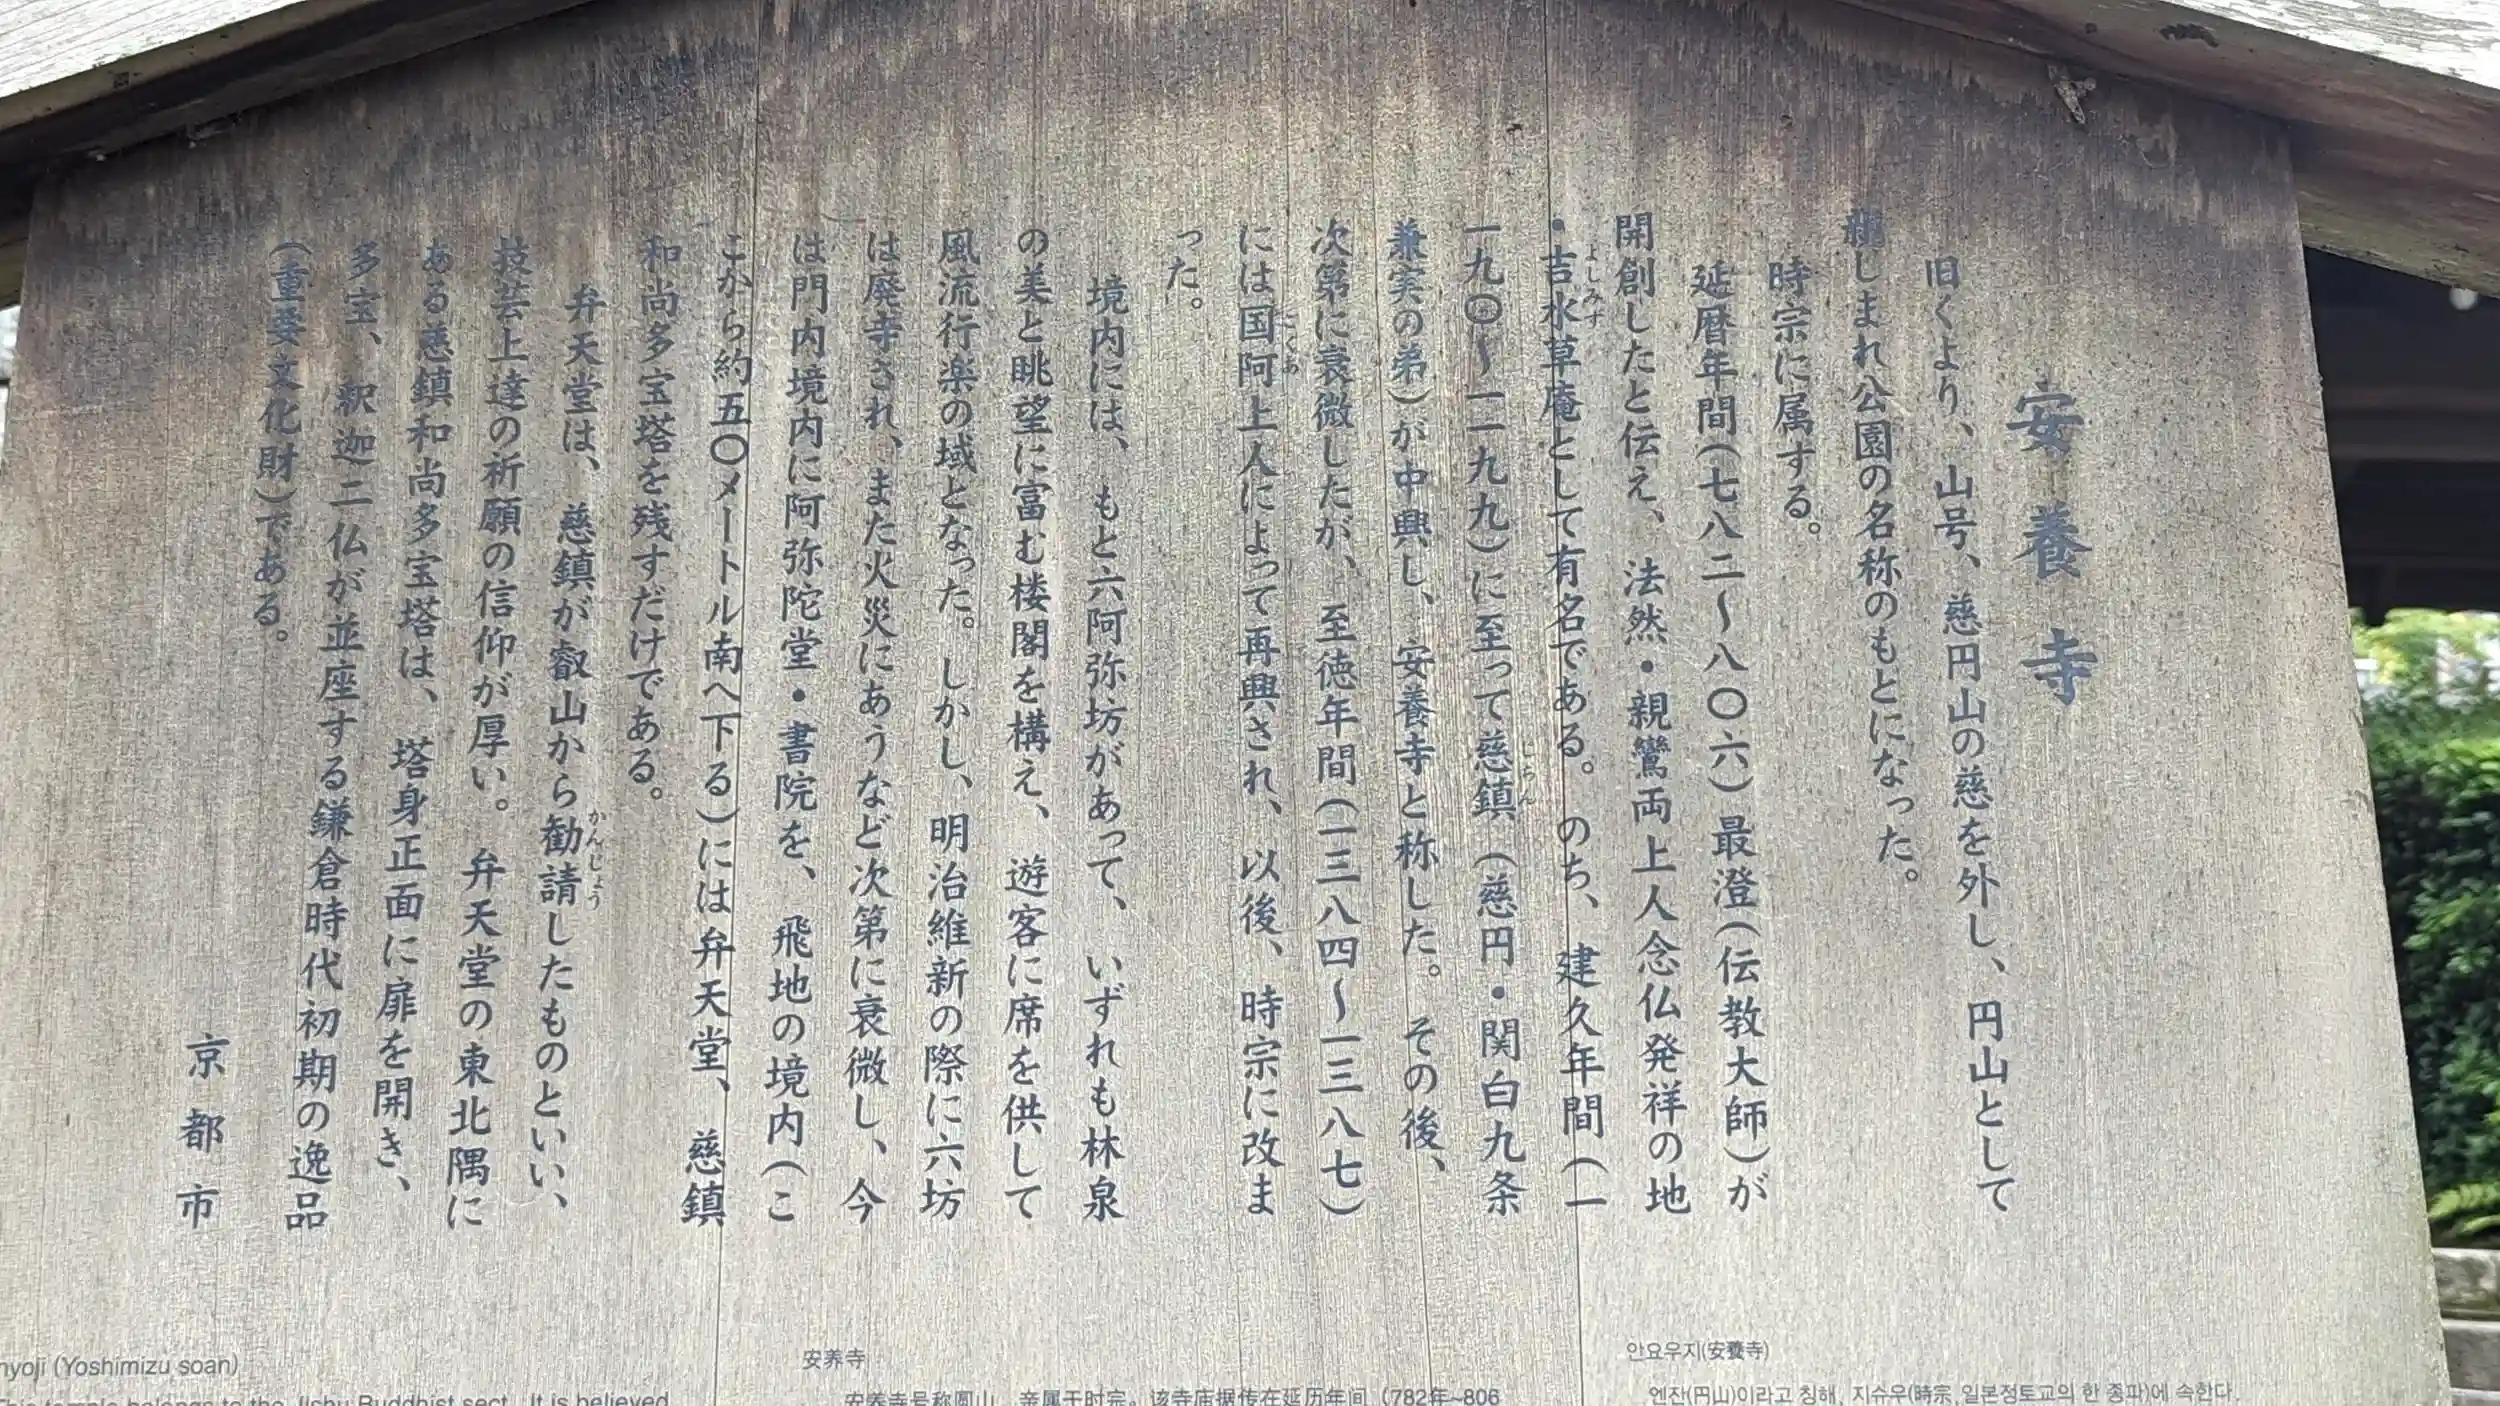 安養寺
旧くより、山号、慈円山の慈を外し、円山として
親しまれ公園の名称のもとになった。
時宗に属する。
延暦年間(七八二〜八〇六)最澄(伝教大師)が
開創したと伝え、法然・親鸞両上人念仏発祥の地
・吉水草庵として有名である。のち、建久年間(一
よしみず
一九〇〜一一九九)に至って慈鎮(慈円・関白九条
じちん
兼実の弟)が中興し、安養寺と称した。その後、
次第に衰微したが、至徳年間(一三八四〜一三八七)
には国阿上人によって再興され、以後、時宗に改ま
こくあ
った。
境内には、もと六阿弥坊があって、いずれも林泉
の美と眺望に富む楼閣を構え、遊客に席を供して
風流行楽の域となった。しかし、明治維新の際に六坊
は廃寺され、また火災にあうなど次第に衰微し、今
は門内境内に阿弥陀堂・書院を、飛地の境内(こ
こから約五〇メートル南へ下る)には弁天堂、慈鎮
和尚多宝塔を残すだけである。
弁天堂は、慈鎮が叡山から勧請したものといい、
かんじょう
技芸上達の祈願の信仰が厚い。弁天堂の東北隅に
ある慈鎮和尚多宝塔は、塔身正面に扉を開き、
多宝、釈迦二仏が並座する鎌倉時代初期の逸品
(重要文化財)である。
京都市
nyoji (Yoshimizu soan)
This temple belongs to the Jishu Buddhist sect. It is believed
安养寺
安养寺号称圆山，亲属于时宗。该寺庙据传在延历年间（782年~806
안요우지(安養寺)
엔잔(円山)이라고 칭해, 지슈우(時宗,일본정토교의 한 종파)에 속한다.